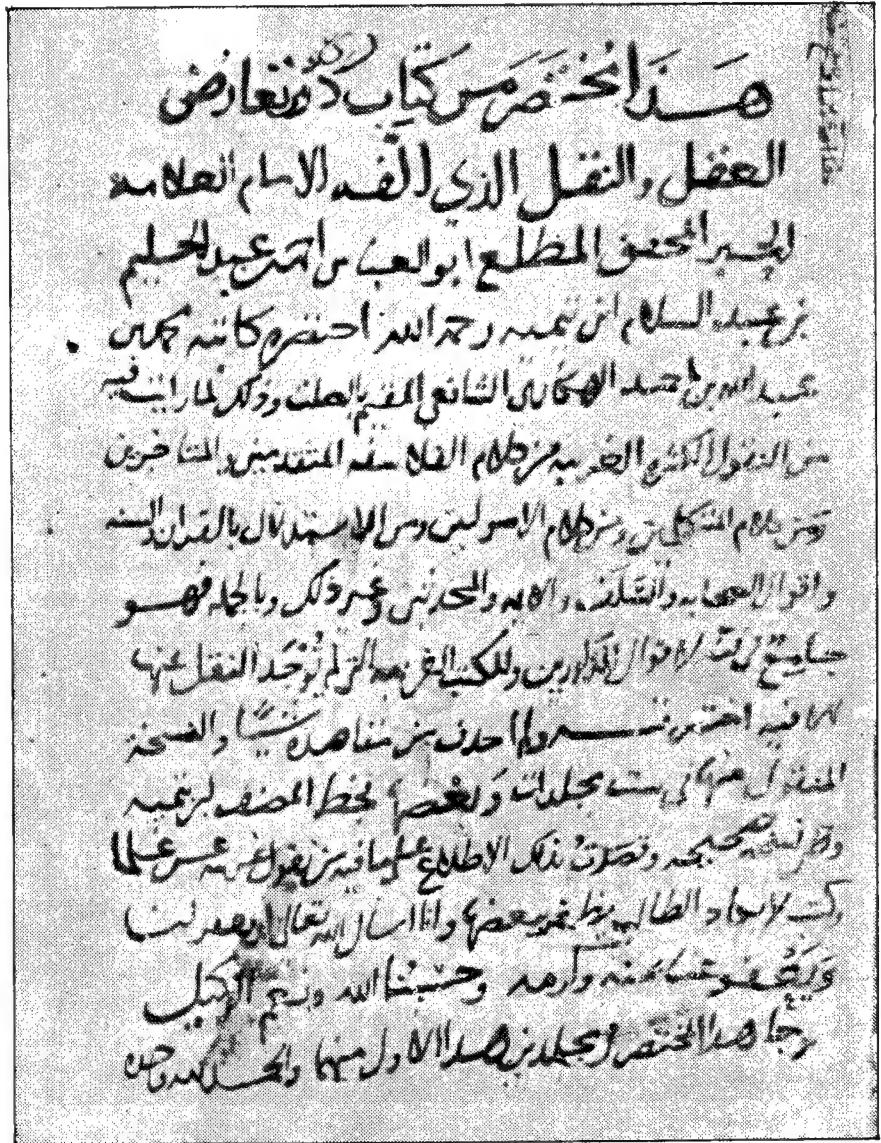 هذا مختصر من كتاب درء تعارض
العقل والنقل الذي الفه الامام العلامه
الحبر المحقق المطلع ابو العباس احمد بن عبد الحليم
بن عبد السلام ابن تيميه رحمه الله اختصره كاتبه محمد بن
عبد الله بن احمد الهكاري الشافعي المقيم بالصلت وذلك لما رايت فيه
من النقول الكثيره الغريبه من كلام الفلاسفه المتقدمين والمتاخرين
ومن كلام المتكلمين ومن كلام الاصوليين ومن الاستدلال بالقران والسنه
واقوال الصحابه والسلف والايمه والمحدثين وغير ذلك وبالجمله فهو
جامع لاقوال المذكورين وللكتب الغريبه التي لم يوجد النقل عنها
فيه ولم احذف من مقاصده شيئا والنسخة
المنقول منها في ست مجلدات وبعضها بخط المصنف ابن تيميه
نسخه صحيحه وقصدت بذلك الاطلاع على ما فيه من نقول غريبه
الطالب يظفر ببعضها وانا اسال الله تعالى ان يغفر لنا
ويعفو عنا بمنه وكرمه وحسبنا الله ونعم الوكيل
وجا هذا المختصر في مجلدين هذا الاول منهما والحمد لله وحده